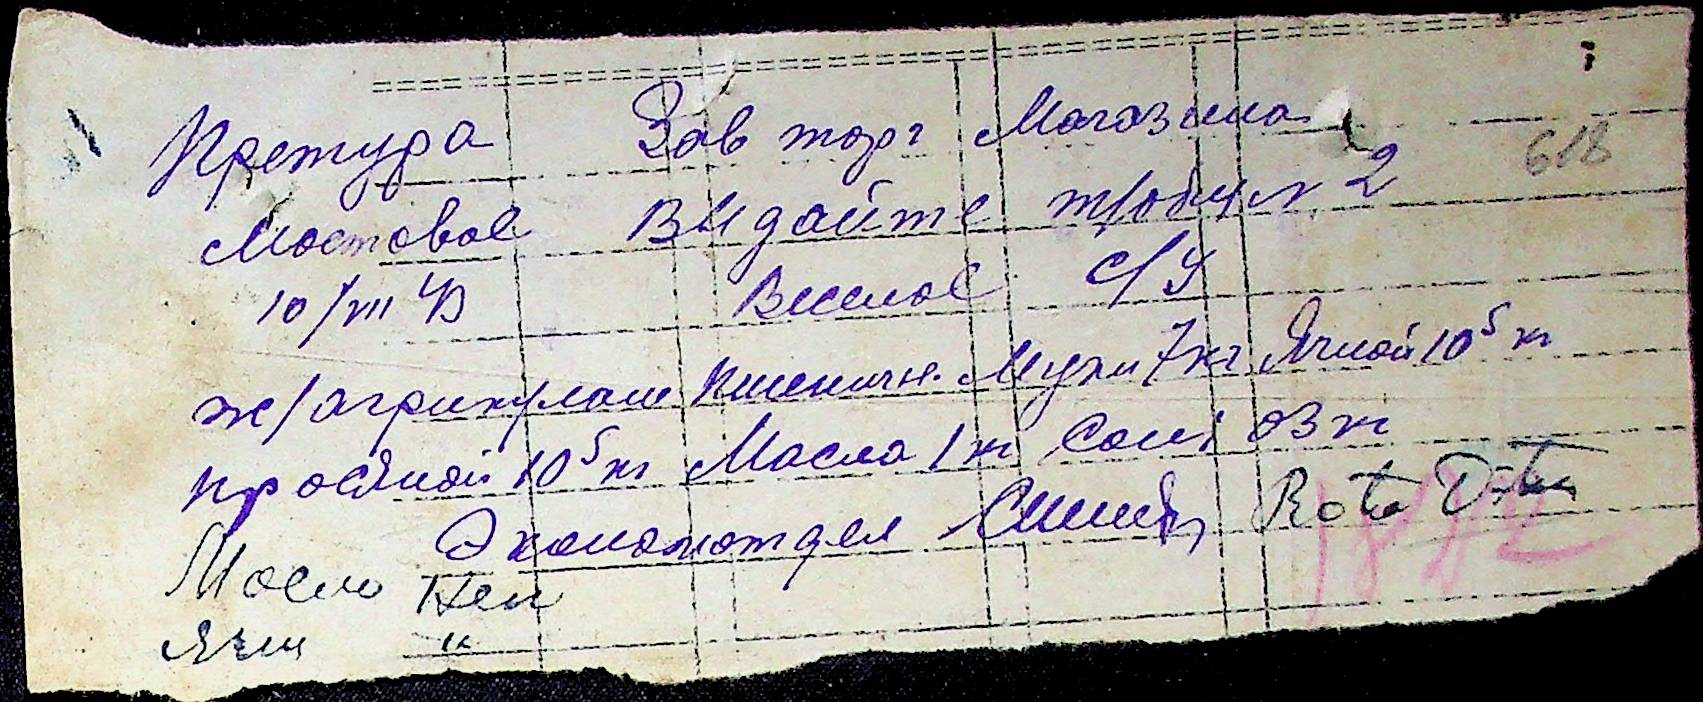 Претура Зав торг Магазина
618
Мостовое Выдайте т/обч N 2
10/VII 43 Веселое с/у
ж/агрикулам Пшеничн. Муки 7 кг Ячной 10⁵ кг
просяной 10⁵ кг Масла 1 кг Соли 03 кг
Экономотдел Rota
Масло Нет
Ячн "